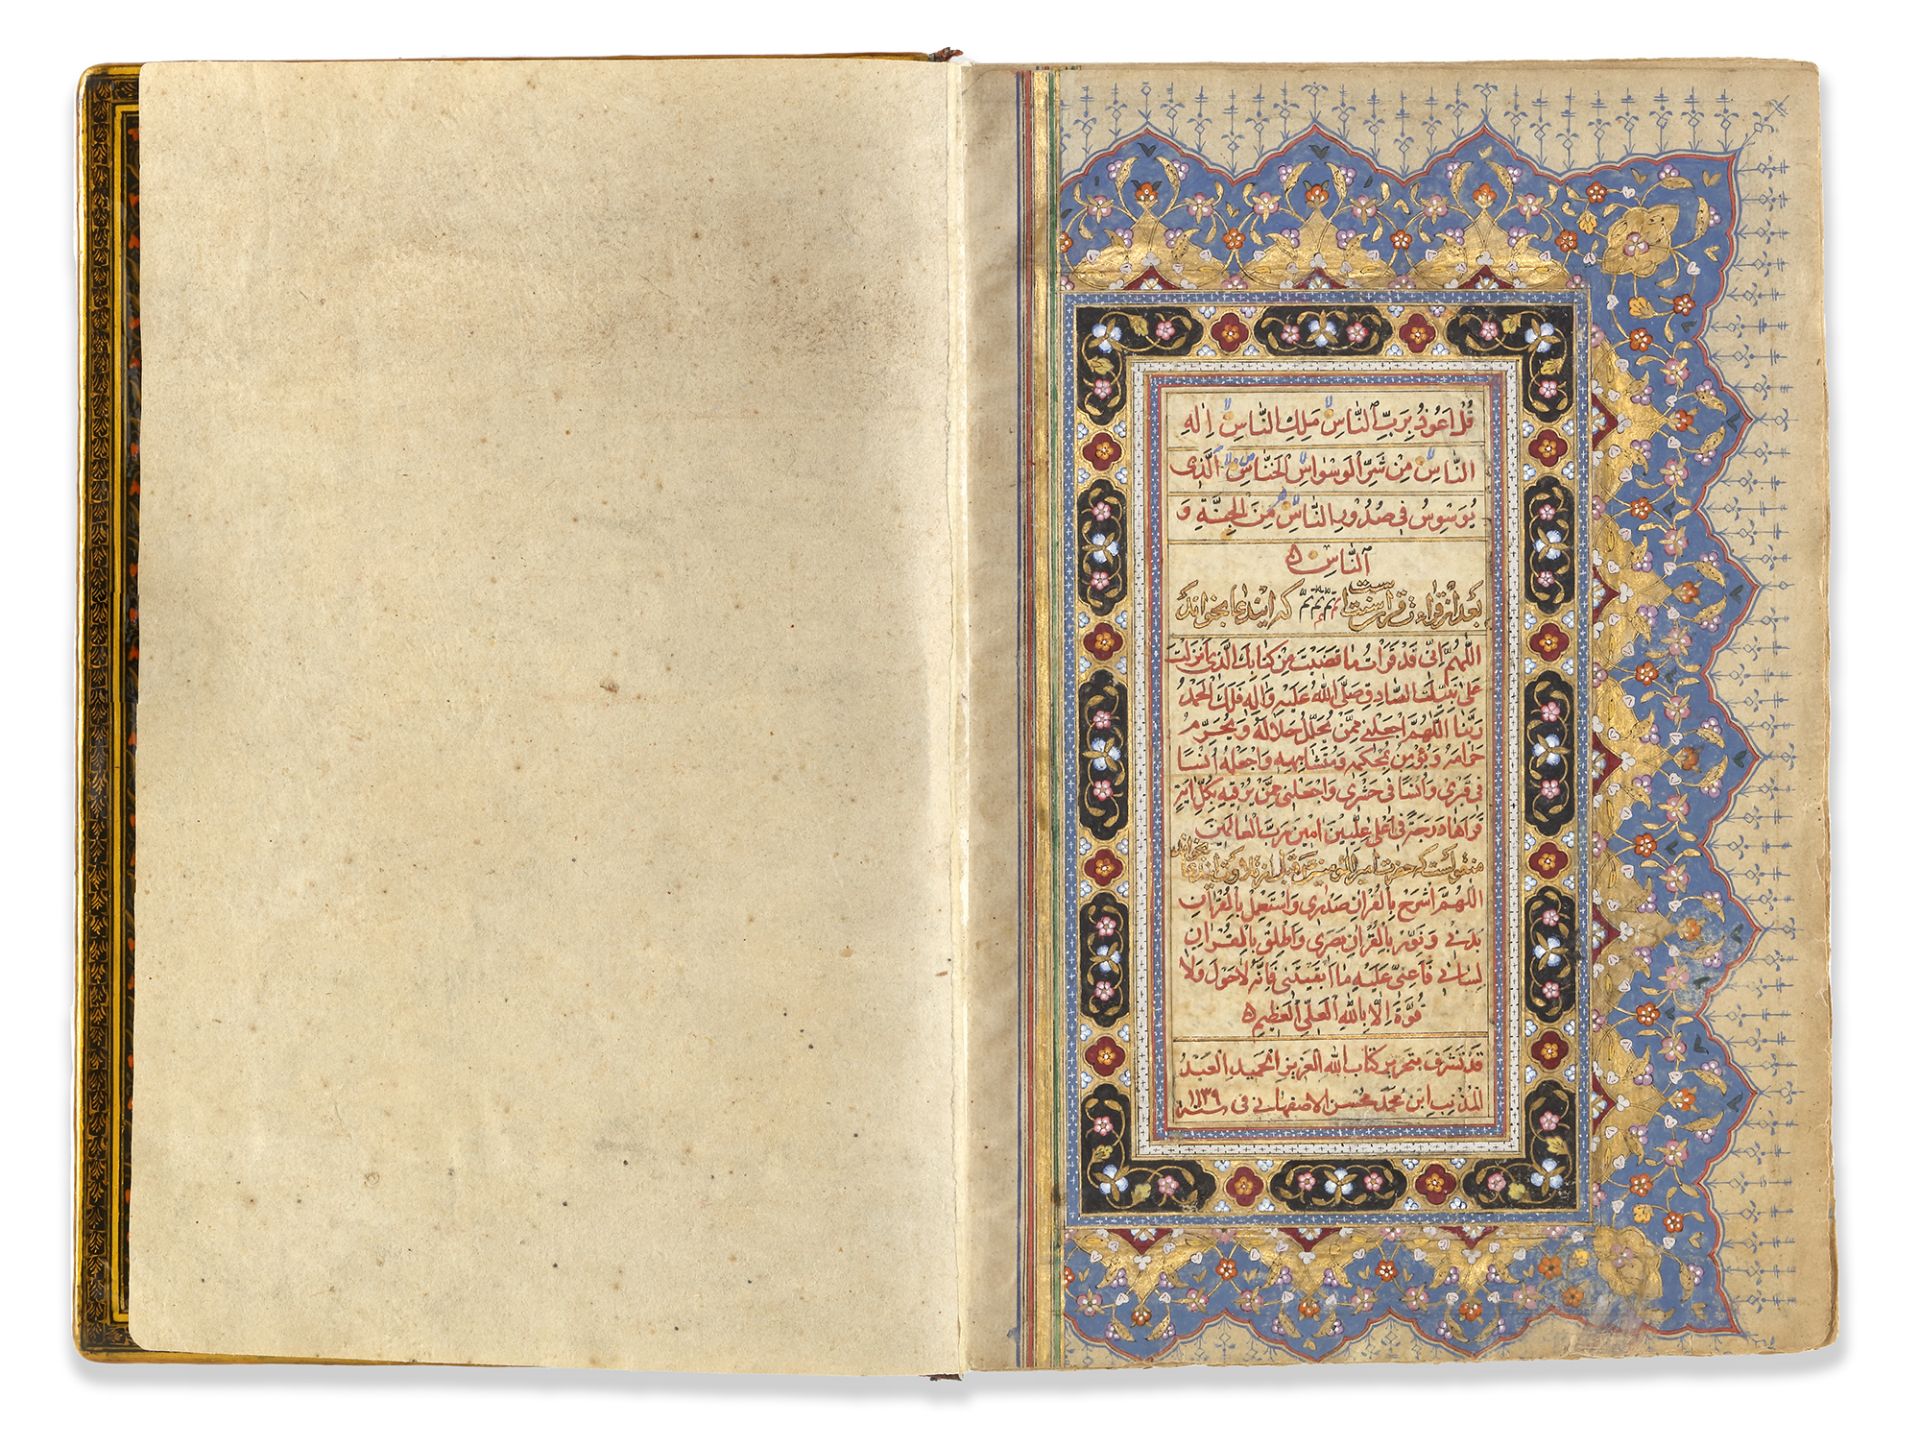 قُلْ اَعُوذُ بِرَبِّ النَّاسِ مَلِكِ النَّاسِ اِلٰهِ
النَّاسِ مِنْ شَرِّ الْوَسْوَاسِ الْخَنَّاسِ الَّذِى
يُوَسْوِسُ فِى صُدُورِ النَّاسِ مِنَ الْجِنَّةِ وَ
النَّاسِ
بعد از قراءت قرآن سنت است كه ايندعا بخوانند
اللهُمَّ اِنّى قَدْ قَرَأتُ ما قَضَيْتَ مِنْ كِتابِكَ الَّذى اَنْزَلْتَ
عَلى نَبِيِّكَ الصّادِقِ صَلَّى اللهُ عَلَيْهِ وَالِهِ فَلَكَ الْحَمْدُ
رَبَّنا اللهُمَّ اجْعَلْنى مِمَّنْ يُحَلِّلُ حَلالَهُ وَيُحَرِّمُ
حَرامَهُ وَيُؤْمِنُ بِمُحْكَمِهِ وَمُتَشابِهِهِ وَاجْعَلْهُ اُنْسًا
فى قَبْرى وَاُنْسًا فى حَشْرى وَاجْعَلْنى مِمَّنْ تُرْقيهِ بِكُلِّ ايَةٍ
قَرَاَهَا دَرَجَةً فى اَعْلى عِلِّيّينَ امينَ رَبَّ الْعالَمينَ
منقولست كه حضرت امير المؤمنين قبل از تلاوت ايندعا بخوانده
اللهُمَّ اشْرَحْ بِالْقُرْانِ صَدْرى وَاسْتَعْمِلْ بِالْقُرْانِ
بَدَنى وَنَوِّرْ بِالْقُرْانِ بَصَرى وَاَطْلِقْ بِالْقُرْانِ
لِسانى فَاَعِنّى عَلَيْهِ ما اَبْقَيْتَنى فَاِنَّهُ لا حَوْلَ وَلا
قُوَّةَ اِلّا بِاللهِ الْعَلِىِّ الْعَظيمِ
قد تشرف بتحرير كتاب الله العزيز الحميد العبد
المذنب ابن محمد محسن الاصفهانى فى سنة ١١٣٩